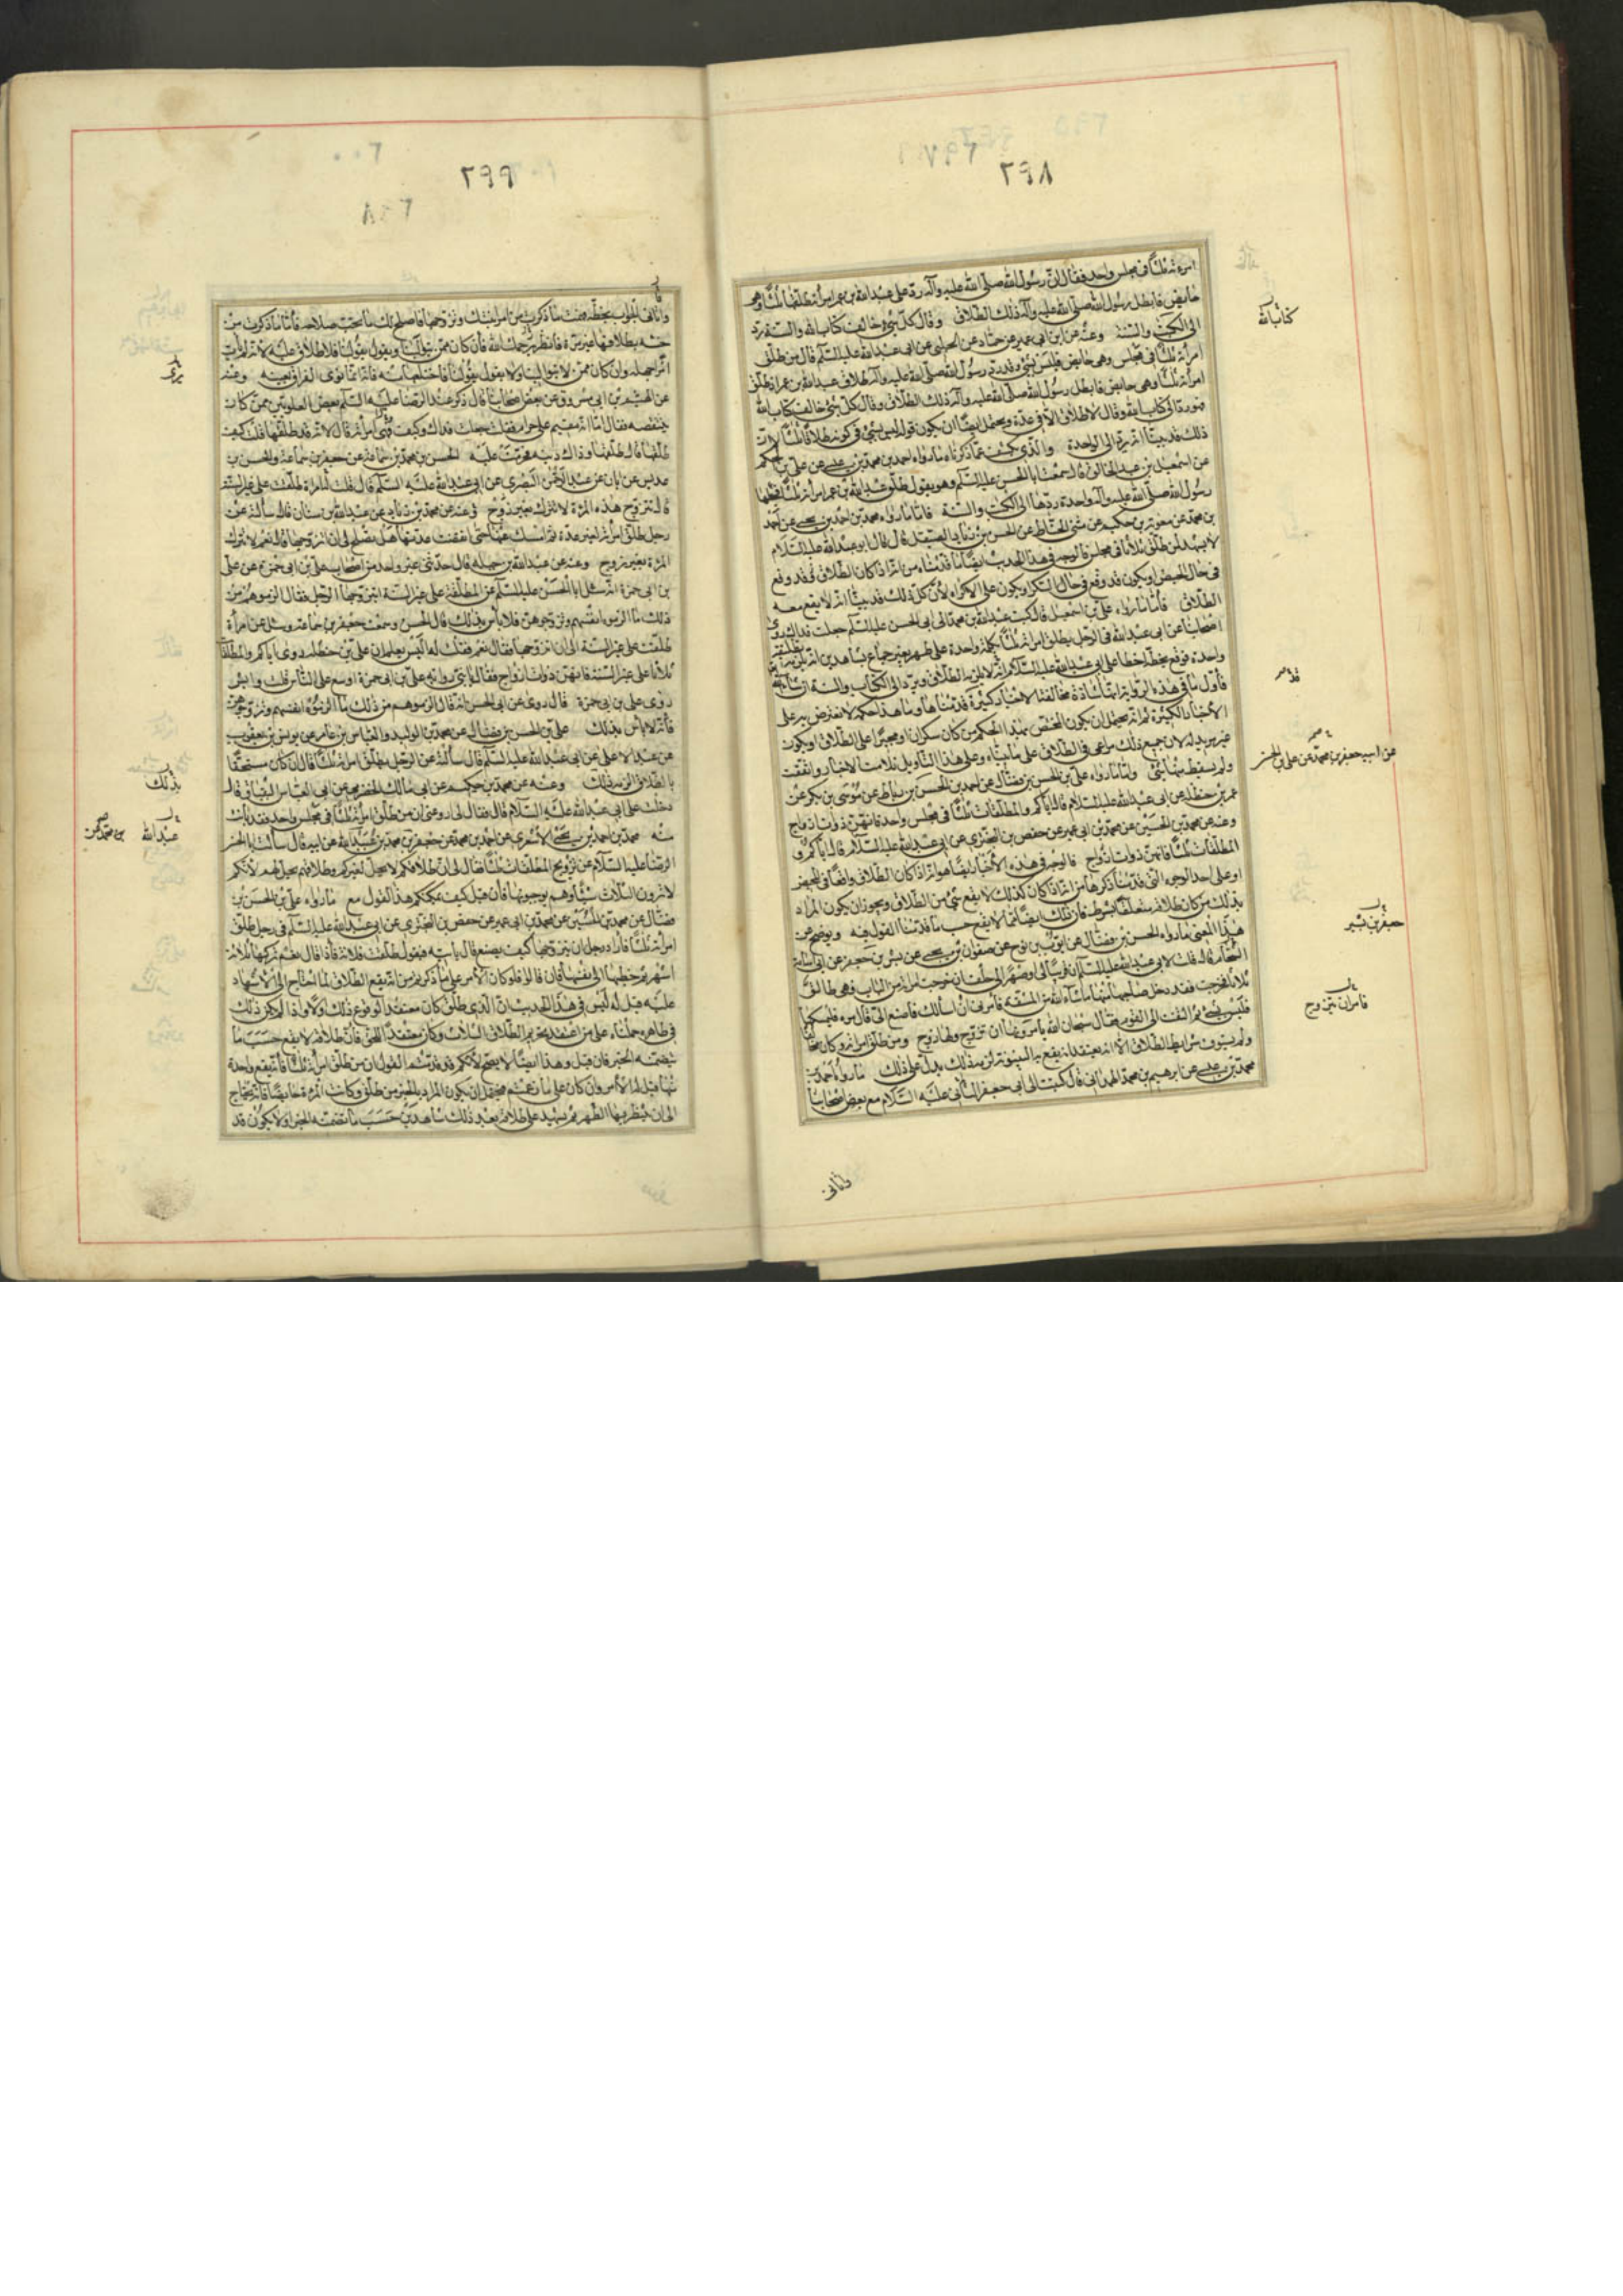 ٢٩٨
امرءته ثلثا فى مجلس واحد فقال ان رسول الله صلى الله عليه وآله ردّ على عبد الله بن عمر امرأته طلقها ثلثا وهى
حايض فابطل رسول الله صلى الله عليه وآله ذلك الطلاق وقال كل شىء خالف كتاب الله والسنة ردّ
الى الكتب والسنة وعنه عن ابن ابى عمير عن حماد عن الحلبى عن ابى عبد الله عليه السلم قال من طلق
امرأته ثلثا فى مجلس وهى حايض فليس بشىء وقد ردّ رسول الله صلى الله عليه وآله طلاق عبد الله بن عمر اذ طلق
امرأته ثلثا وهى حايض فابطل رسول الله صلى الله عليه وآله ذلك الطلاق وقال كل شىء خالف كتاب الله
فهو ردّ الى كتاب الله وقال لا طلاق الا فى عدة ويحتمل ايضا ان يكون قوله ليس بشىء فى كونه طلاقا ثلثا لانّ
ذلك قد بينا انه يردّ الى الواحدة والذى يكشف عما ذكرناه ما رواه احمد بن محمد بن عيسى عن على بن الحكم
عن اسمعيل بن عبد الخالق قال سمعت ابا الحسن عليه السلم وهو يقول طلق عبد الله بن عمر امرأته ثلثا فجعلها
رسول الله صلى الله عليه وآله واحدة ردّها الى الكتب والسنة فاما ما رواه محمد بن احمد بن يحيى عن احمد
بن محمد عن معوية بن حكيم عن مثنى الحناط عن الحسن بن زياد الصيقل قال قال ابو عبد الله عليه السلام
لا تشهد لمن طلق ثلاثا فى مجلس فالوجه فى هذا الحديث ايضا ما قدمناه من انه اذا كان الطلاق قد وقع
فى حال الحيض او يكون قد وقع فى حال السكر او يكون على الاكراه لان كل ذلك قد بينا انه لا يقع معه
الطلاق فاما ما رواه على بن اسمعيل قال كتب عبد الله بن محمد الى ابى الحسن عليه السلم جعلت فداك روى
اصحابنا عن ابى عبد الله فى الرجل يطلق امرأته ثلثا بكلمة واحدة على طهر بغير جماع بشاهدين انه يلزمه تطليقة
واحدة فوقع بخطه اخطأ على ابى عبد الله عليه السلام انه لا يلزمه الطلاق ويردّ الى الكتاب والسنة ان شاء الله
فأول ما فى هذه الرواية انها شاذة مخالفة لاخبار كثيرة قدمناها وما هذا حكمه لا نعترض به على
الاخبار الكثيرة ثم انه يحتمل ان يكون المختص بهذا الحكم من كان سكران او مجبرا على الطلاق او يكون
غير مريد له لان جميع ذلك مراعى فى الطلاق على ما بيناه وعلى هذا التأويل تلاءمت الاخبار واتفقت
ولم يسقط منها شىء واما ما رواه على بن الحسن بن فضال عن احمد بن الحسن بن رباط عن موسى بن بكر عن
عمر بن حنظلة عن ابى عبد الله عليه السلام قال اياكم والمطلقات ثلثا فى مجلس واحد فانهن ذوات ازواج
وعنه عن محمد بن الحسين عن محمد بن ابى عمير عن حفص بن البخترى عن ابى عبد الله عليه السلام قال اياكم و
المطلقات ثلثا فانهن ذوات ازواج فالوجه فى هذه الاخبار ايضا هو انه اذا كان الطلاق واقعا فى الحيض
او على احد الوجوه التى قدمنا ذكرها من انه اذا كان كذلك لا يقع شىء من الطلاق ويجوز ان يكون المراد
بذلك من كان طلاقه متعلقا بشرط فان ذلك ايضا مما لا يقع حسب ما قدمنا القول فيه ويوضح عن
هذا المعنى ما رواه الحسن بن فضال عن ايوب بن نوح عن صفوان بن يحيى عن بشر بن جعفر عن ابى اسامة
الشحام قال قلت لابى عبد الله عليه السلم ان قريبا لى او صهرا لى حلف ان خرجت امرأته من الباب فهى طالق
ثلاثا فخرجت فقد دخل صاحبها منها ما شاء الله من المشقة فأمرنى ان اسألك فاصغى الى قال مره فليمسكها
فليس بشىء ثم التفت الى القوم فقال سبحان الله يأمرونها ان تتزوج ولها زوج ومن طلق امرأته وكان مخالفا
ولم يستوف شرايط الطلاق الا انه يعتقد انه يقع به البينونة لزمه ذلك يدل على ذلك ما رواه احمد بن
محمد بن عيسى عن ابرهيم بن محمد الهمدانى قال كتبت الى ابى جعفر الثانى عليه السلام مع بعض اصحابنا
كتاب الله
عن ابيه جعفر بن محمد عن على بن الحسن
جعفر بن بشير
فامر ان تتزوج
فاتانى
٢٩٩
واتانى الجواب بخطه فهمت ما ذكرت من امر ابنتك وزوجها فاصلح لك ما تحب صلاحه فاما ما ذكرت من
حنثه بطلاقها غير مرة فانظر يرحمك الله فان كان ممن يتولانا ويقول بقولنا فلا طلاق عليه لانه لم يأت
امرا جهله وان كان ممن لا يتوالينا ولا يقول بقولنا فاختلعها منه فانه انما نوى الفراق بعينه وعنه
عن الهيثم بن ابى مسروق عن بعض اصحابنا قال ذكر عند الرضا عليه السلم بعض العلويين ممن كان
ينتقصه فقال اما انه مقيم على حرام فقلت جعلت فداك وكيف وهى امرأته قال لانه قد طلقها قلت كيف
طلقها قال طلقها وذاك دينه فحرمت عليه الحسن بن محمد بن سماعة عن جعفر بن سماعة والحسن بن
عديس عن ابان عن عبد الرحمن البصرى عن ابى عبد الله عليه السلم قال قلت له امرأة طلقت على غير السنة
قال تتزوج هذه المرءة لا تترك بغير زوج وعنه عن محمد بن زياد عن عبد الله بن سنان قال سألته عن
رجل طلق امرأته لغير عدة ثم امسك عنها حتى انقضت عدتها هل يصلح لى ان اتزوجها قال نعم لا تترك
المرءة بغير زوج وعنه عن عبد الله بن جبلة قال حدثنى غير واحد من اصحاب على بن ابى حمزة عن على
بن ابى حمزة انه سئل ابا الحسن عليه السلم عن المطلقة على غير السنة ايتزوجها الرجل فقال الزموهم من
ذلك ما الزموا انفسهم وتزوجوهن فلا بأس بذلك قال الحسن وسمعت جعفر بن سماعة وسئل عن امرأة
طلقت على غير السنة الى ان اتزوجها فقال نعم فقلت له اليس تعلم ان على بن حنظلة روى اياكم والمطلقات
ثلاثا على غير السنة فانهن ذوات ازواج فقال يا بنى رواية على بن ابى حمزة اوسع على الناس قلت وايش
روى على بن ابى حمزة قال روى عن ابى الحسن انه قال الزموهم من ذلك ما الزموه انفسهم وتزوجوهن
فانه لا بأس بذلك على بن الحسن بن فضال عن محمد بن الوليد والعباس بن عامر عن يونس بن يعقوب
عن عبد الاعلى عن ابى عبد الله عليه السلم قال سألته عن الرجل يطلق امرأته ثلثا قال ان كان مستخفا
بالطلاق الزمته ذلك وعنه عن محمد بن حكيم عن ابى مالك الحضرمى عن ابى العباس البقباق قال
دخلت على ابى عبد الله عليه السلام قال فقال لى ارو عنى ان من طلق امرأته ثلثا فى مجلس واحد فقد بانت
منه محمد بن احمد بن يحيى الاشعرى عن احمد بن محمد عن جعفر بن محمد بن عبيد الله عن ابيه قال سألت ابا الحسن
الرضا عليه السلام عن تزويج المطلقات ثلثا فقال لى ان طلاقكم لا يحل لغيركم وطلاقهم يحل لكم لانكم
لا ترون الثلاث شيئا وهم يوجبونها فان قيل كيف يمكنكم هذا القول مع ما رواه على بن الحسن بن
فضال عن محمد بن الحسين عن محمد بن ابى عمير عن حفص بن البخترى عن ابى عبد الله عليه السلم فى رجل طلق
امرأته ثلثا فاراد رجل ان يتزوجها كيف يصنع قال يأتيه فيقول طلقت فلانة فاذا قال نعم تركها ثلاثة
اشهر ثم خطبها الى نفسها فان قالوا فلو كان الامر على ما ذكرتم من انه يقع الطلاق لما احتاج الى الاشهاد
عليه قيل له ليس فى هذا الحديث ان الذى طلق كان معتقدا لوقوع ذلك او لا واذا لم يكن ذلك
فى ظاهره حملناه على من اعتقد تحريم الطلاق الثلاث وكان معتقدا للحق فان طلاقه لا يقع حسب ما
تضمنه الخبر فان قيل وهذا ايضا لا يصح لانكم قد قدمتم القول ان من طلق امرأته ثلثا فانه يقع واحدة
منها قيل له الامر وان كان على ما زعمتم فيحتمل ان يكون المراد بالخبر من طلق وكانت المرءة حايضا فانه يحتاج
الى ان ينتظر بها الطهر ثم يشهد على طلاقه بعد ذلك شاهدين حسب ما تضمنه الخبر او لا يكون قد
بذلك
عبد الله